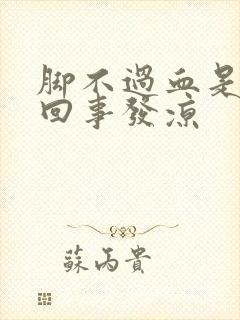 脚不過血是
回事發涼
蘇丙貴